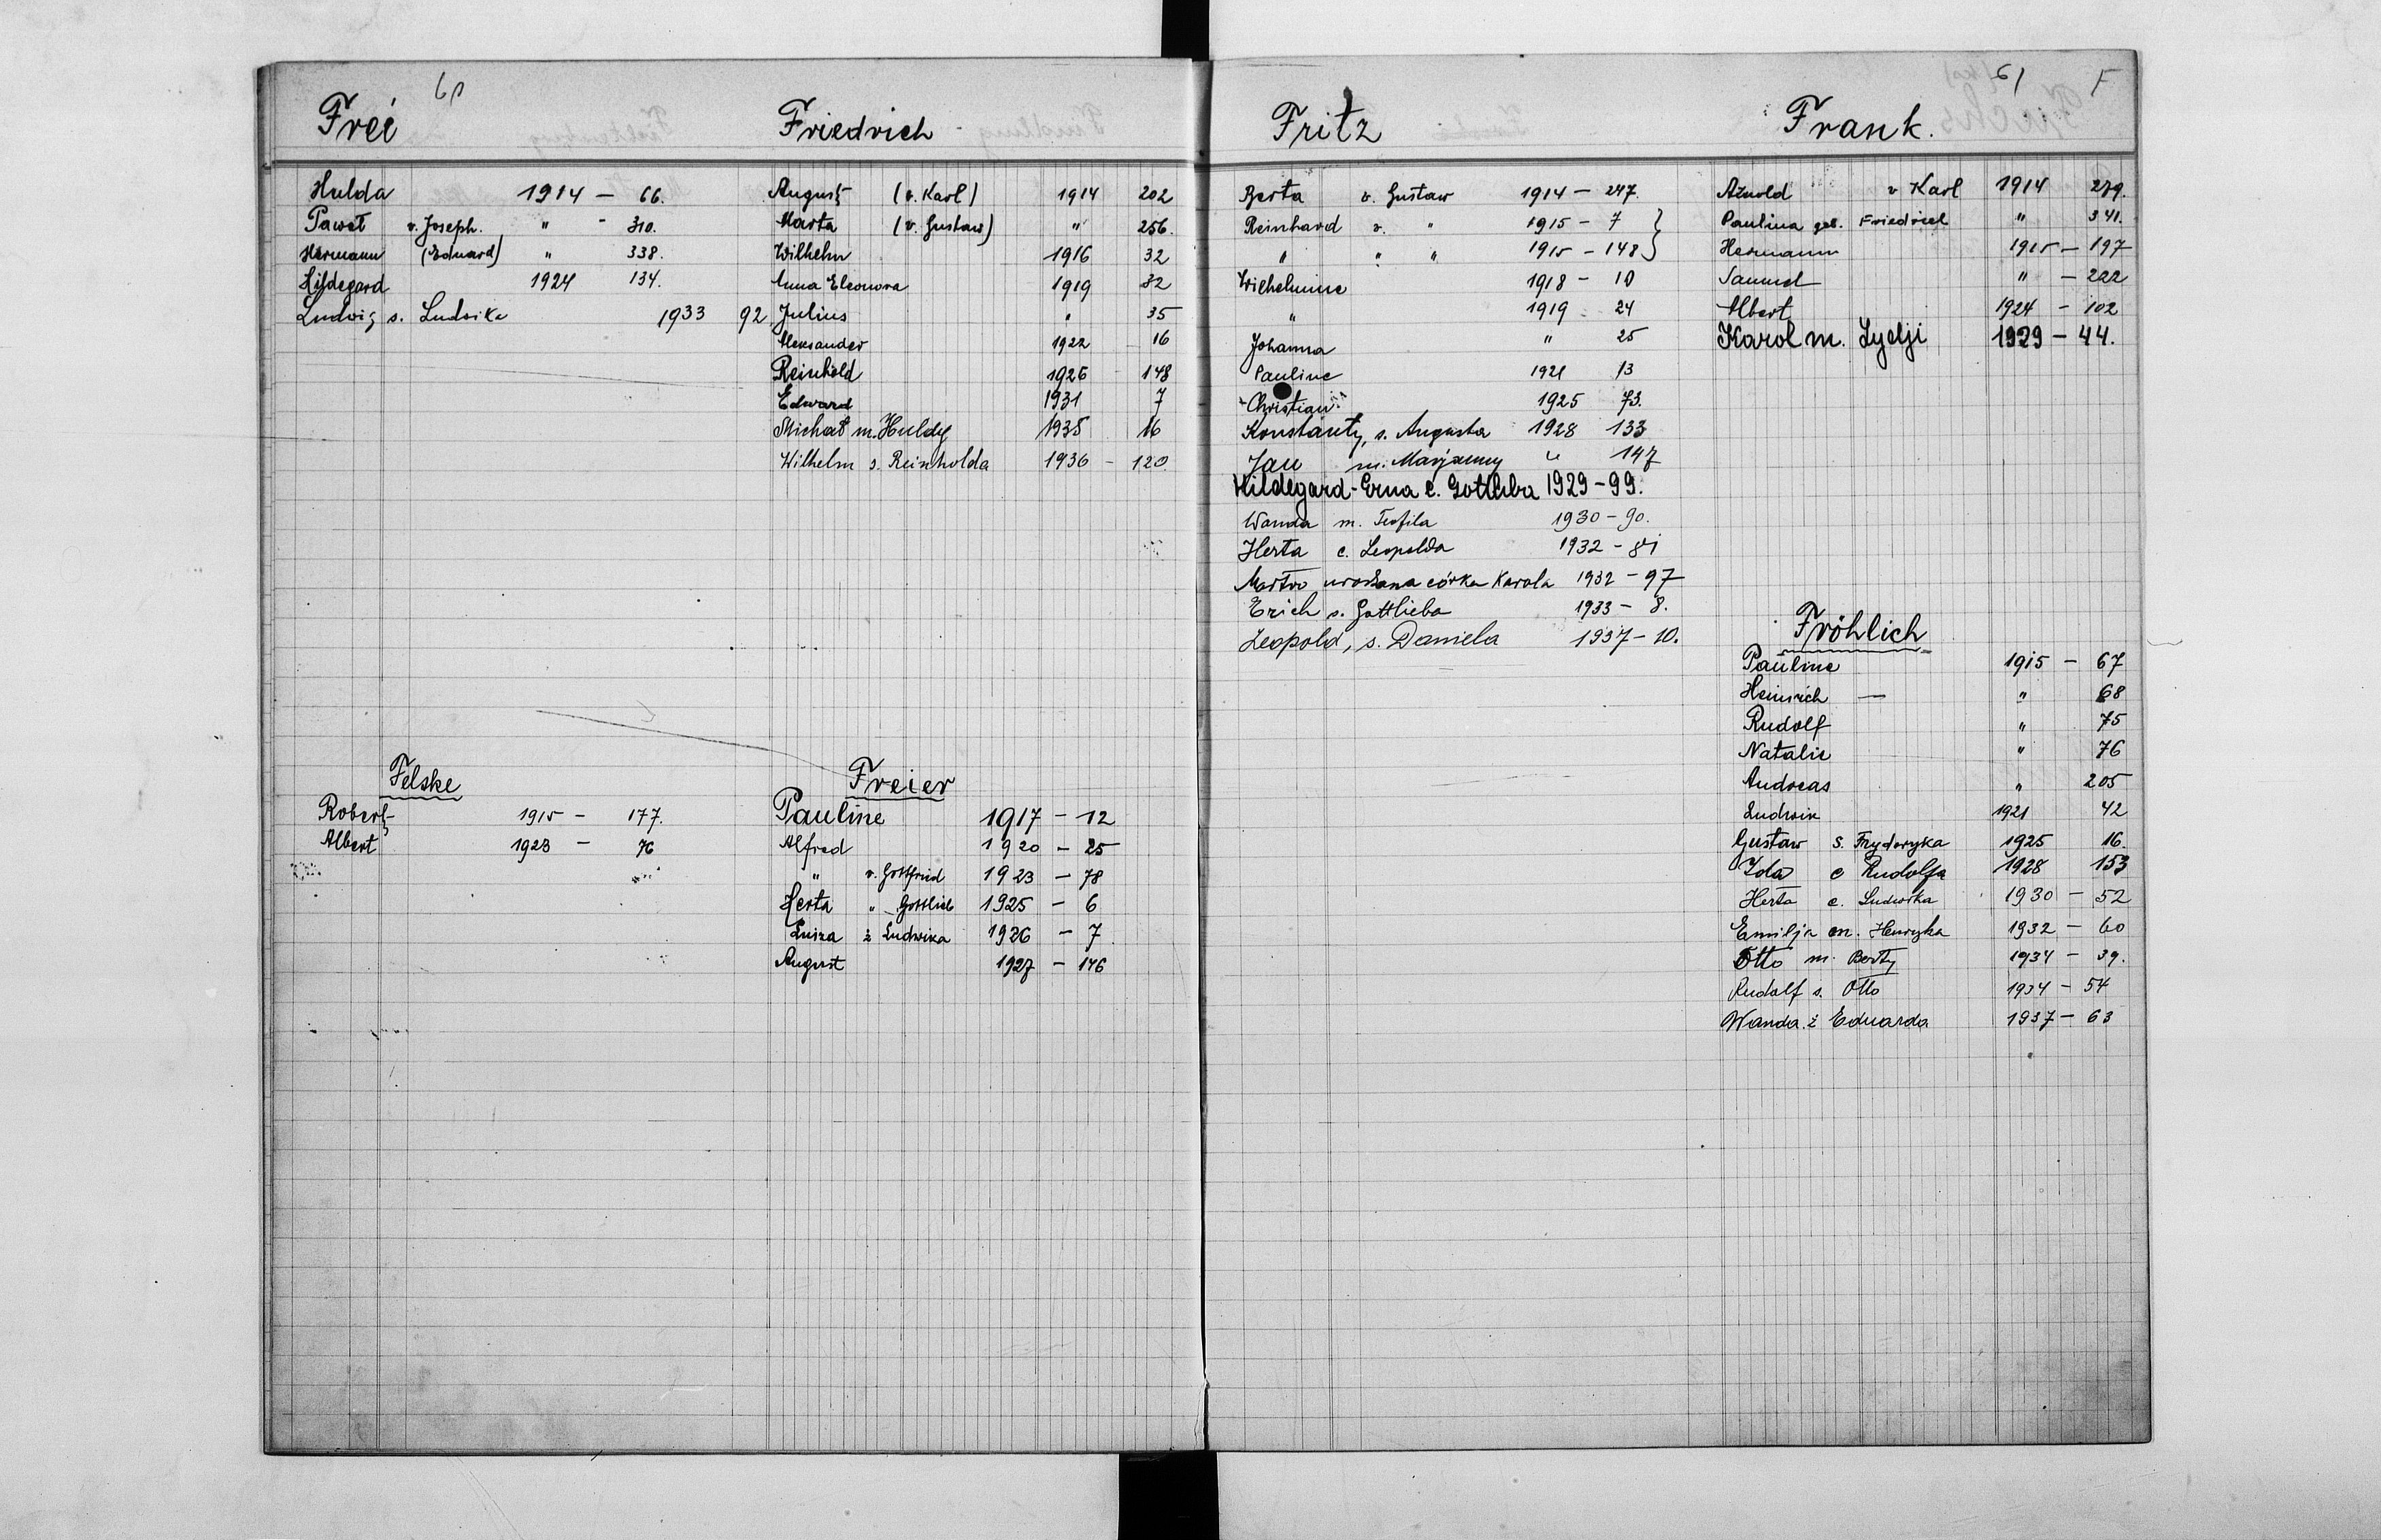 60
Frei
Hulda 1914 - 66.
Paweł v. Joseph. " - 310.
Hermann (Eduard) " 338.
Hildegard 1924 134.
Ludwig s. Ludwika 1933 92
Felske
Robert 1915 - 177.
Albert 1923 - 76
Friedrich
August (v. Karl) 1914 202
Marta (v. Gustaw) " 256.
Wilhelm 1916 32
Anna Eleonora 1919 32
Julius " 35
Aleksander 1922 16
Reinhold 1926 148
Edward 1931 7
Michał m. Huldy 1935 16
Wilhelm s. Reinholda 1936 - 120
Freier
Pauline 1917 - 12
Alfred 1920 - 25
" v. Gottfried 1923 - 78
Herta " Gottlieb 1925 - 6
Luiza ż Ludwika 1926 - 7
August 1927 - 146
61 F
Fritz
Berta v. Gustaw 1914 - 247.
Reinhard v. " 1915 - 7 }
" " " 1915 - 148 }
Wilhelmine 1918 - 10
" 1919 24
Johanna " 25
Pauline 1921 13
Christian 1925 73.
Konstanty, s. Augusta 1928 133
Jan m. Marjanny " 147
Hildegard-Erna c. Gottliba 1929 - 99.
Wanda m. Teofila 1930 - 90.
Herta c. Leopolda 1932 - 81
Marta urodzona córka Karola 1932 - 97
Erich s. Gottlieba 1933 - 8.
Leopold, s. Daniela 1937 - 10.
Frank.
Arnold v Karl 1914 279.
Paulina geb. Friedrich " 341.
Hermann 1915 - 197
Samuel " - 222
Albert 1924 - 102
Karol m. Lydji 1929 - 44.
Fröhlich
Pauline 1915 - 67
Heinrich — " 68
Rudolf " 75
Natalie " 76
Andreas " 205
Ludwik 1921 42
Gustaw s. Fryderyka 1925 16.
Ida c Rudolfa 1928 153
Herta c. Ludwika 1930 - 52
Emilja m. Henryka 1932 - 60
Otto m. Berty 1934 - 39.
Rudolf s. Otto 1934 - 54
Wanda ż Eduarda 1937 - 63